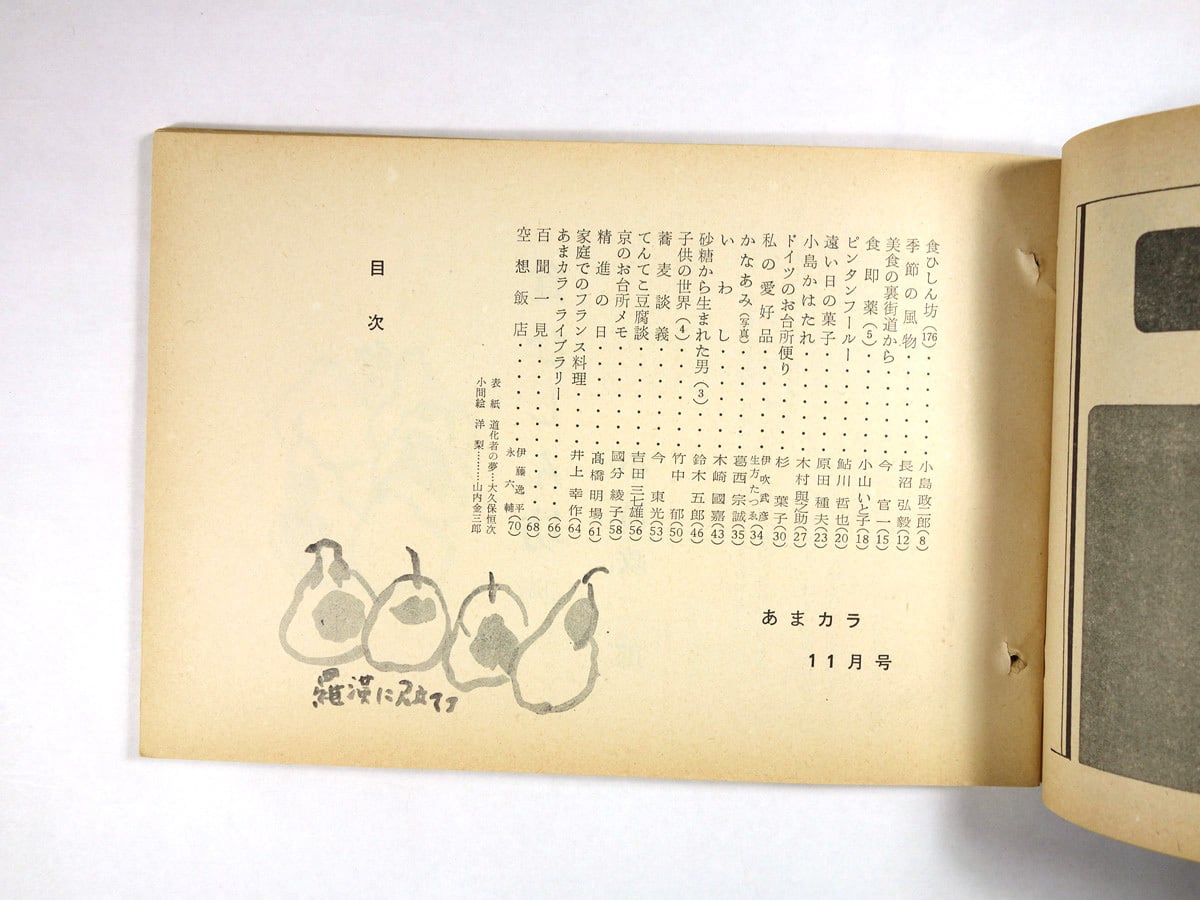 あまカラ
11月号
目次
食ひしん坊(176)・・・・・小島政二郎(8)
季節の風物・・・・・長沼弘毅(12)
美食の裏街道から・・・・今官一(15)
食即薬(5)・・・・・小山いと子(18)
ピンタンフールー・・・・鮎川哲也(20)
遠い日の菓子・・・・・原田種夫(23)
小島かはたれ・・・・・木村與之助(27)
ドイツのお台所便り・・・・杉葉子(30)
私の愛好品・・・・・伊吹武彦 生方たつゑ(34)
かなあみ(写真)・・・・・葛西宗誠(35)
いわし・・・・・木崎國嘉(43)
砂糖から生まれた男(3)・・鈴木五郎(46)
子供の世界(4)・・・・・竹中郁(50)
蕎麦談義・・・・・今東光(53)
てんてこ豆腐談・・・・・吉田三七雄(56)
京のお台所メモ・・・・・國分綾子(58)
精進の日・・・・・髙橋明場(61)
家庭でのフランス料理・・・井上幸作(64)
あまカラ・ライブラリー・・・・・(66)
百聞一見・・・・・(68)
空想飯店・・・・・伊藤逸平 永六輔(70)
表紙 道化者の夢…大久保恒次
小間絵 洋梨………山内金三郎
羅漢に